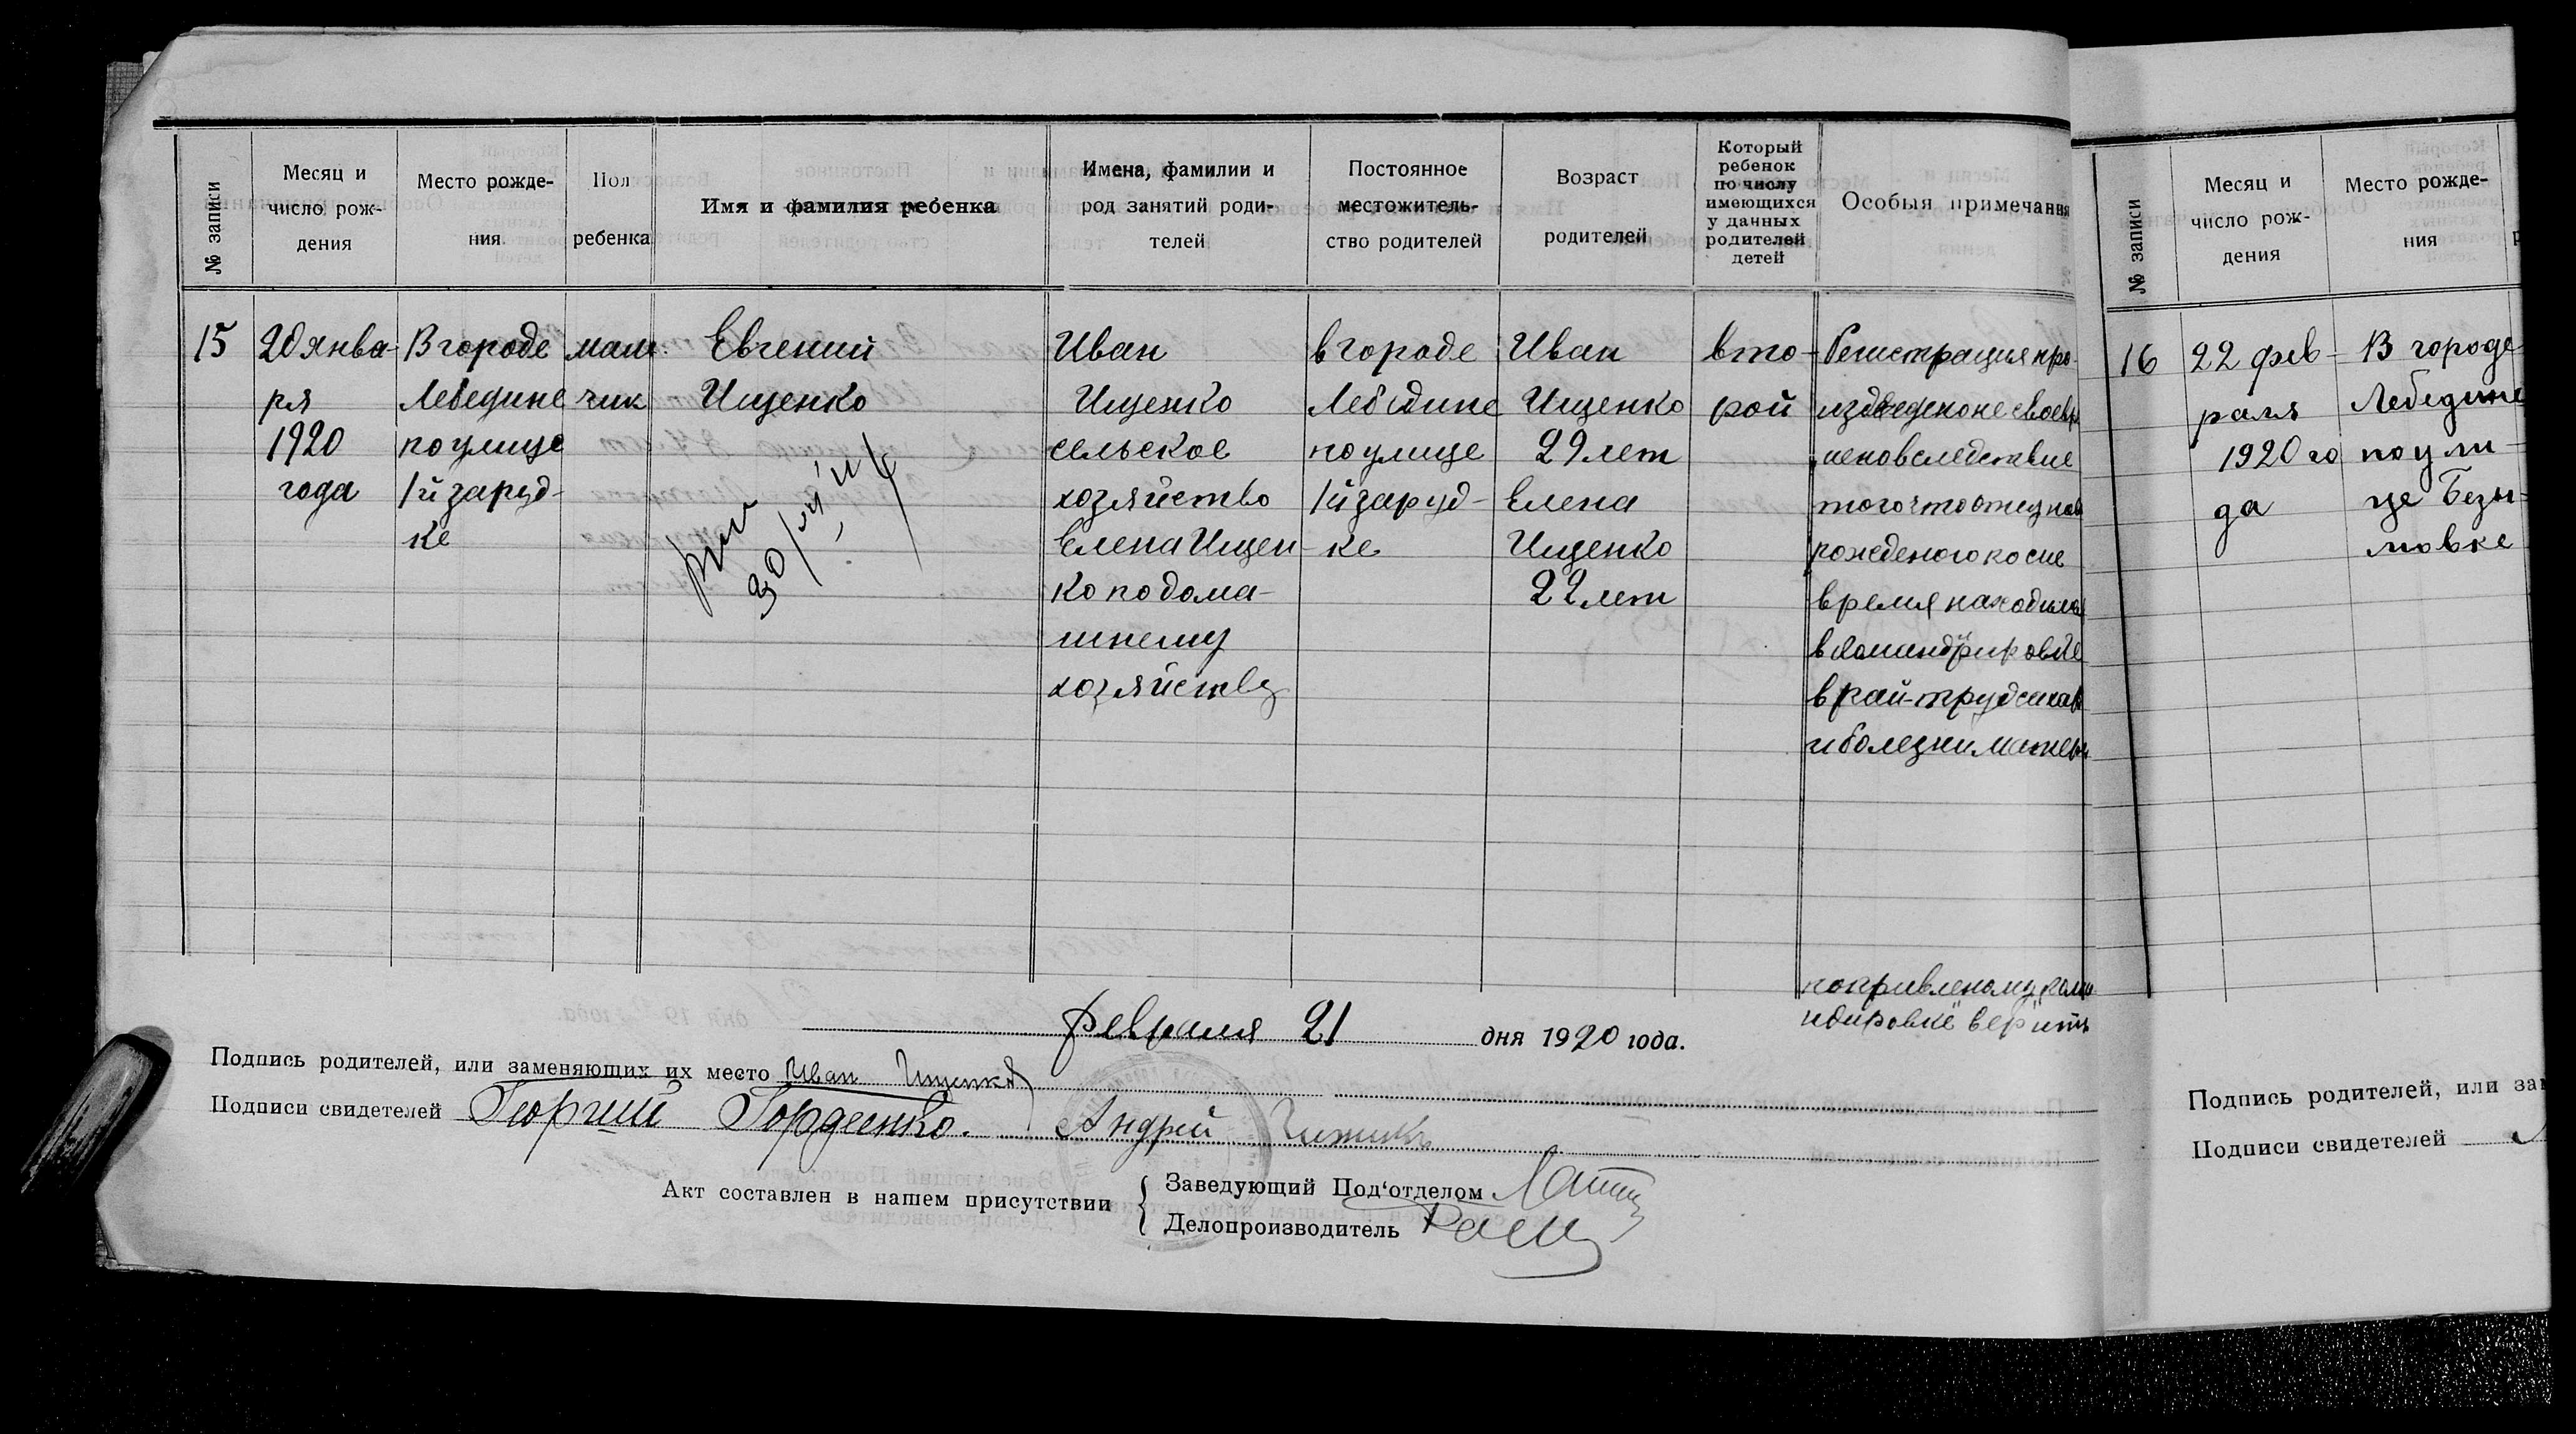 № записи
Месяц и
число рож-
дения
Место рожде-
ния
Пол
ребенка
Имя и фамилия ребенка
Имена, фамилии и
род занятий роди-
телей
Постоянное
местожитель-
ство родителей
Возраст
родителей
Который
ребенок
по числу
имеющихся
у данных
родителей
детей
Особыя примечания
15
20 янва-
ря
1920
года
В городе
Лебедине
по улице
1й заруд-
ке
маль
чик
Евгений
Ищенко
Иван
Ищенко
сельское
хозяйство
Елена Ищен-
ко по дома-
шнему
хозяйству
в городе
Лебедине
по улице
1й заруд-
ке
Иван
Ищенко
29 лет
Елена
Ищенко
22 лет
вто-
рой
Регистрация про-
изведено не своевр
мено вследствие
того что отец нов
рожденого во сие
время находился
в командировке
в рай-труд
и болезни матери
верить
Февраля 21 дня 1920 года.
Подпись родителей, или заменяющих их место Иван Ищенко
Подписи свидетелей Георгий Гордеенко. Андрей
Акт составлен в нашем присутствии
Заведующий Под'отделом
Делопроизводитель
№ записи
Месяц и
число рож-
дения
Место рожде-
ния
16
22 фев-
раля
1920 го
да
В городе
Лебедине
по ули-
це Безы-
мовке
Подпись родителей, или за
Подписи свидетелей